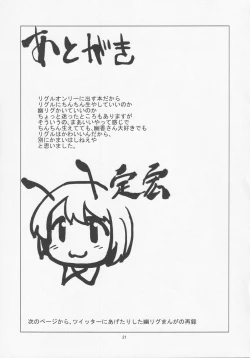 あとがき
リグルオンリーに出す本だから
リグルにちんちん生やしていいのか
幽リグかいていいのか
ちょっと迷ったところもありますが
そういうの、まあいいやって感じで
ちんちん生えてても、幽香さん大好きでも
リグルはかわいいんだから、
別にかまはしねえや
と思いました。
定宏
次のページから、ツイッターにあげたりした幽リグまんがの再録
31